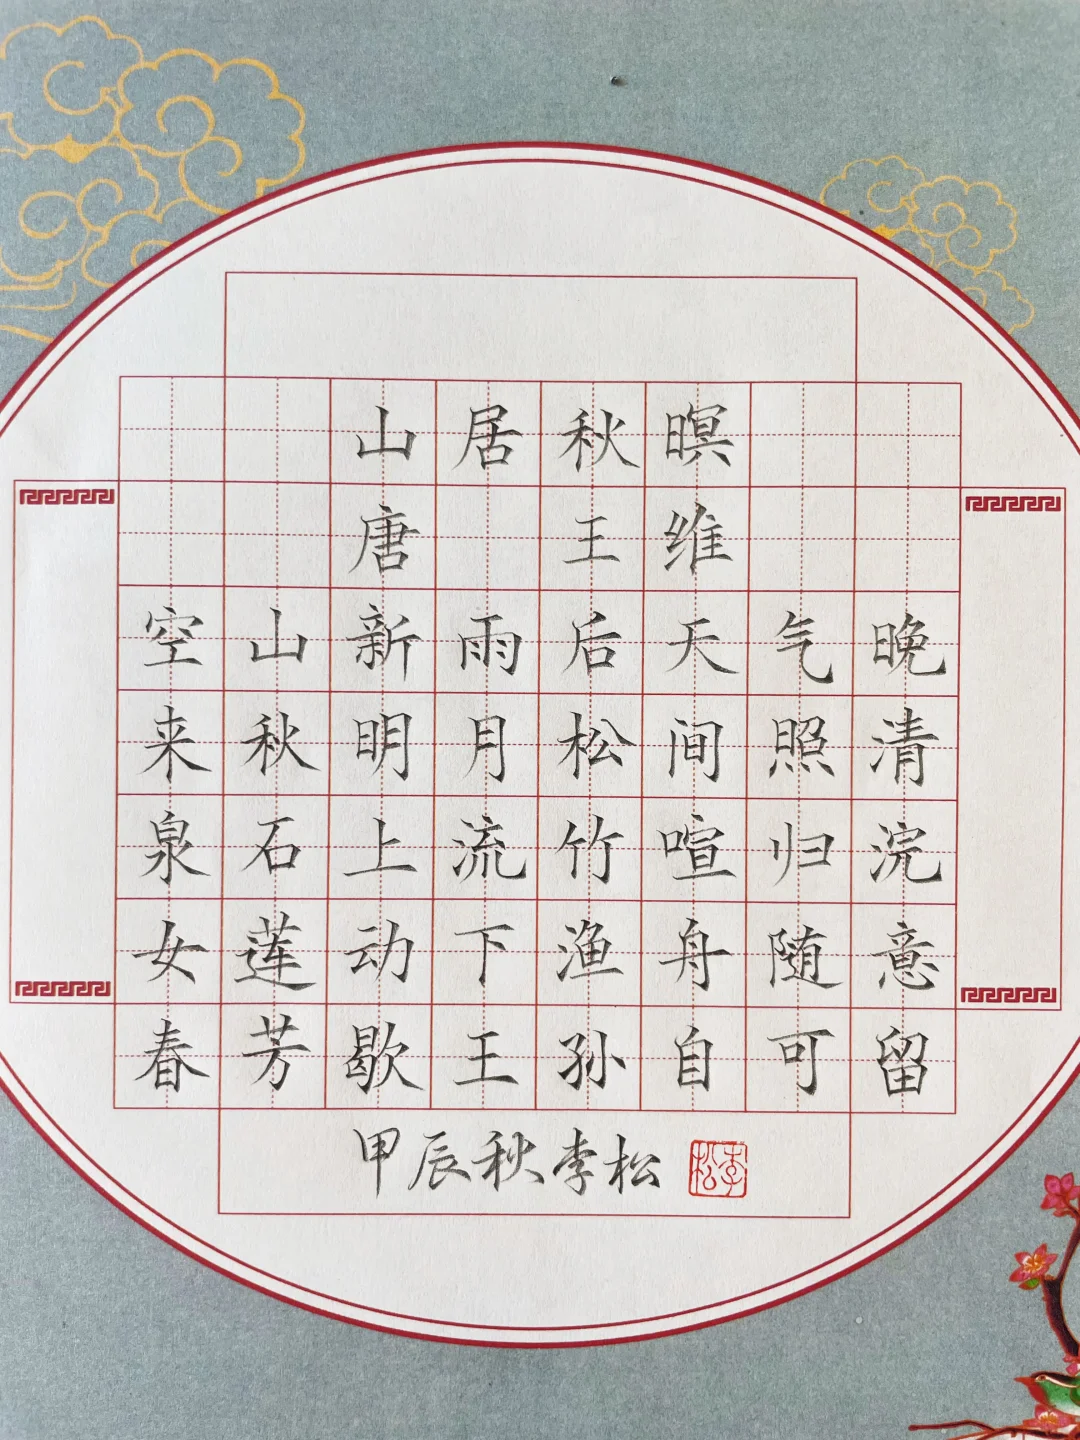 山居秋暝
唐 王维
空山新雨后天气晚
来秋明月松间照清
泉石上流竹喧归浣
女莲动下渔舟随意
春芳歇王孙自可留
甲辰秋李松
李松